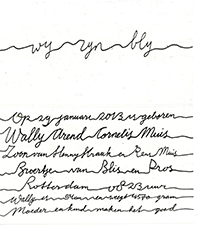 wij zijn blij
Op 29 januari 2013 is geboren
Wally Arend Cornelis Muis
Zoon van en Muis
Broertje van Blis en Pros
Rotterdam 08 23 uur
Wally is en weegt gram
Moeder en kind maken het goed